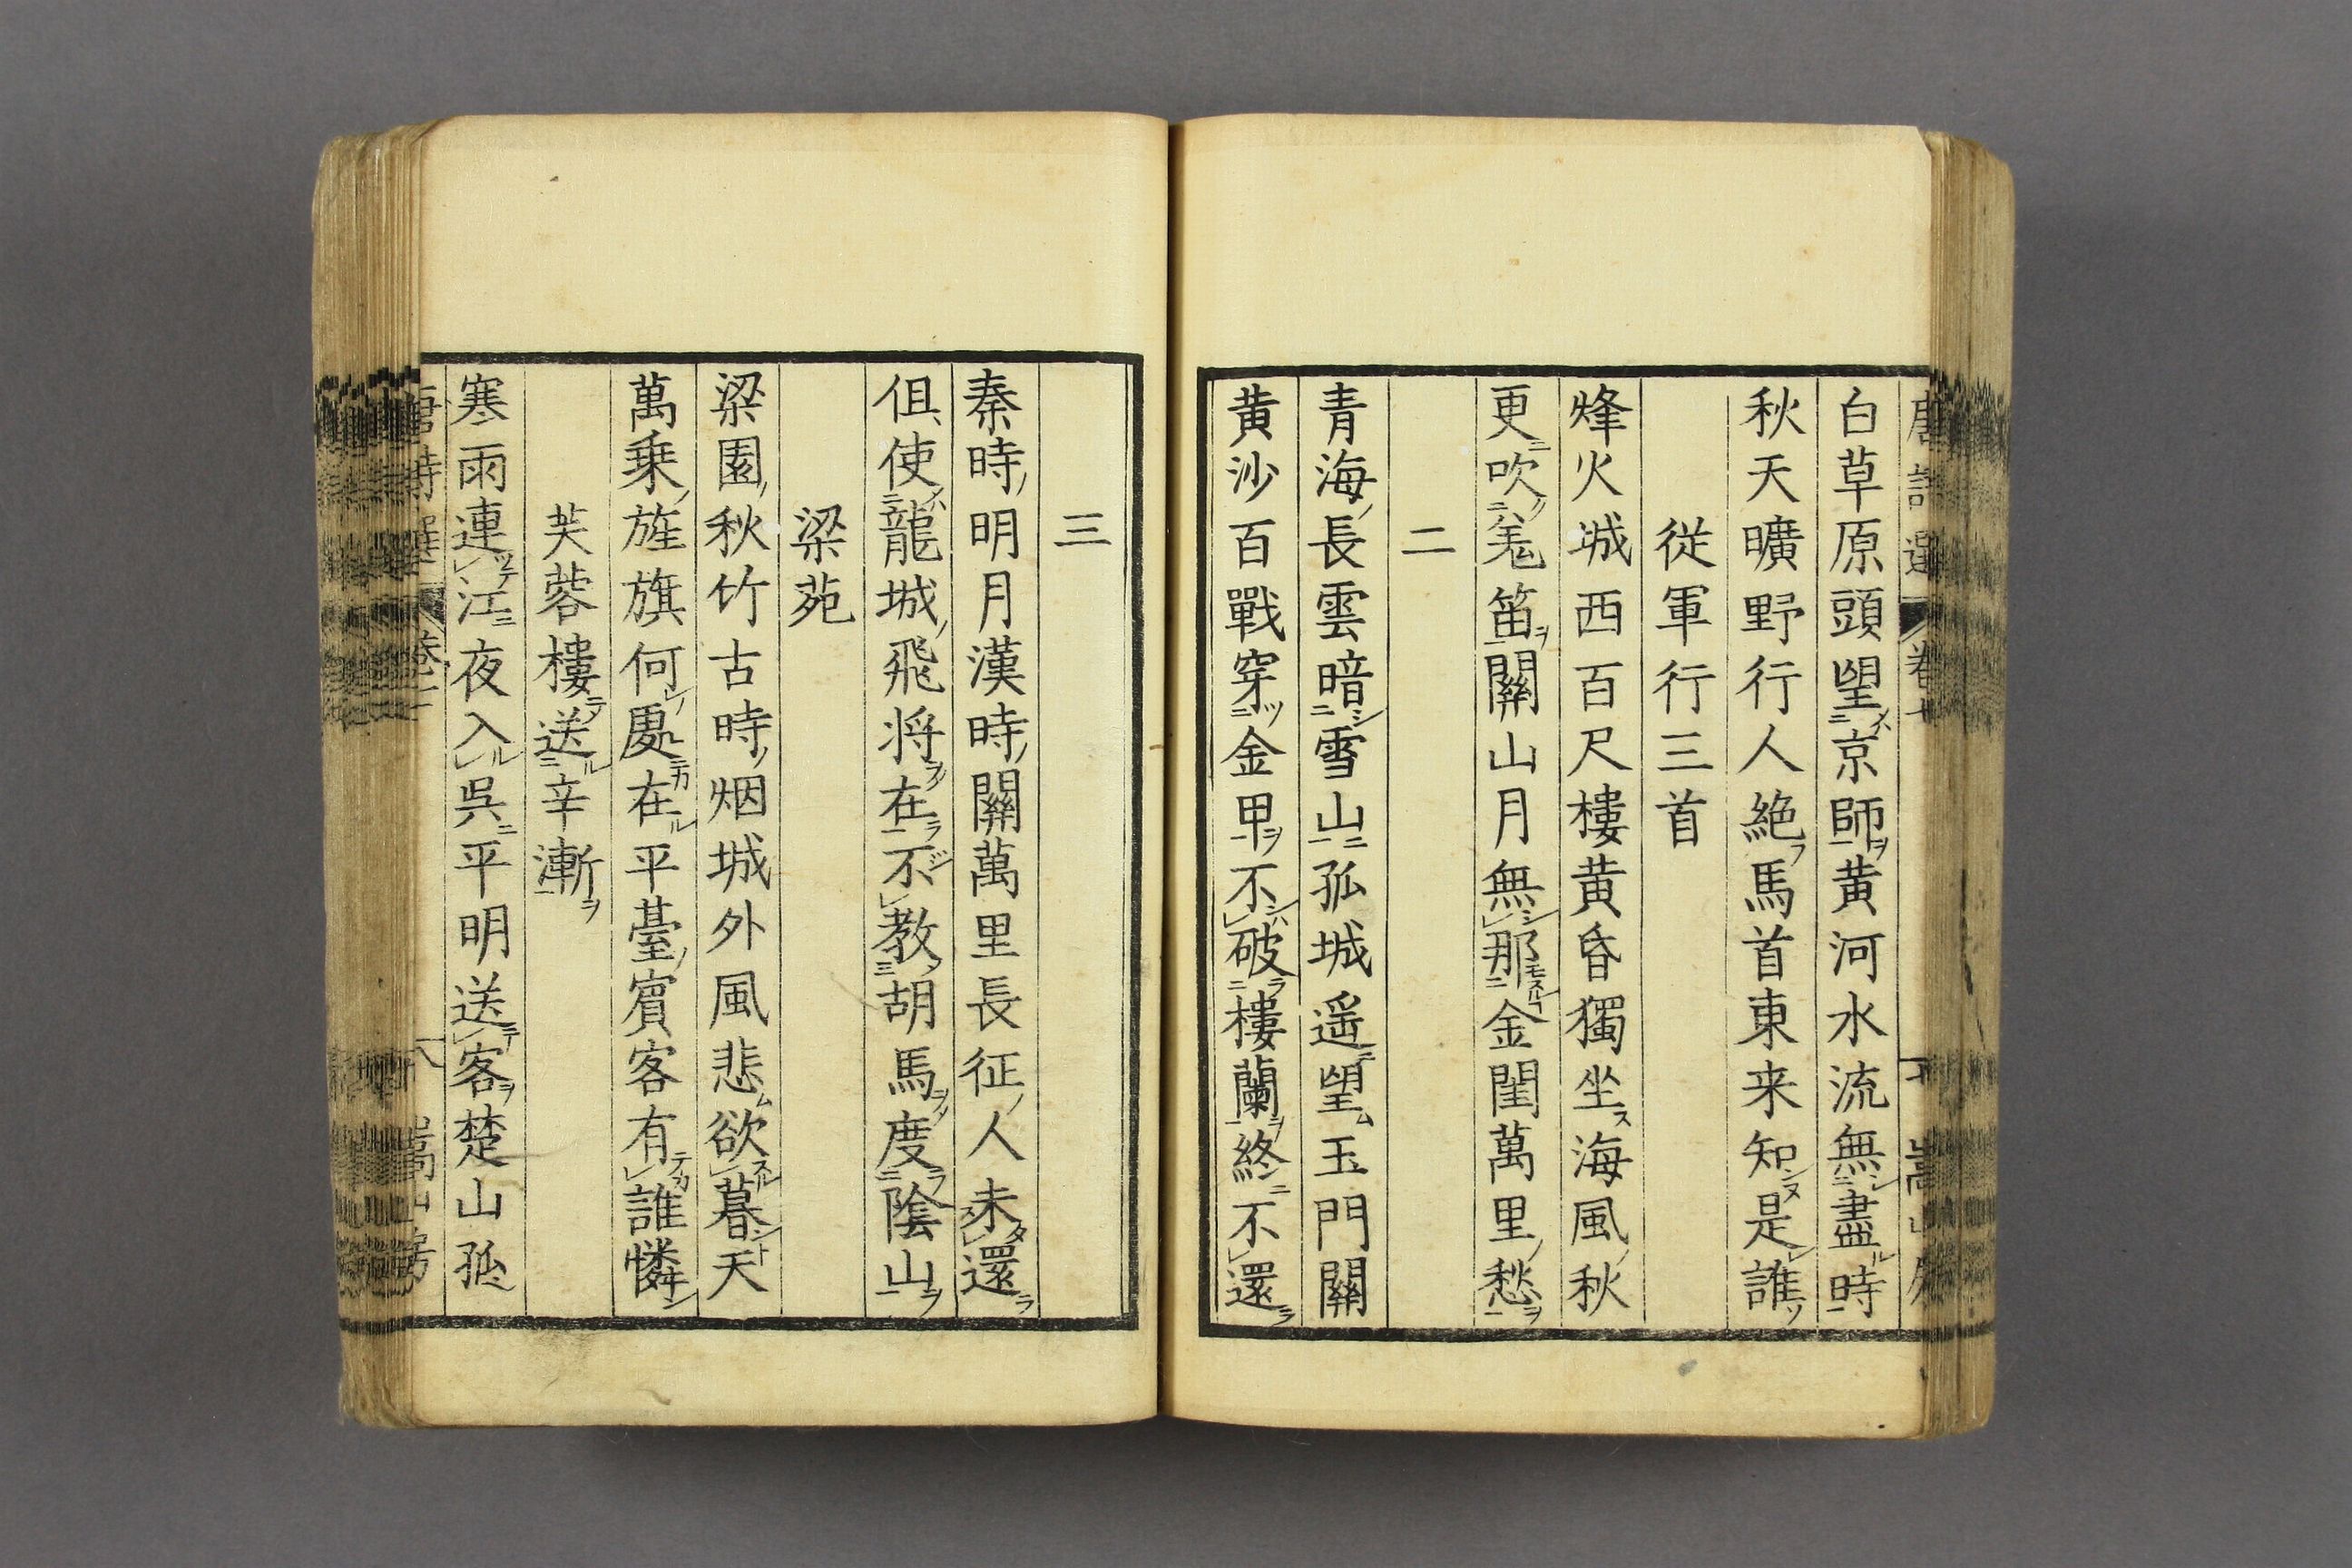 唐詩選 卷七 嵩山房
白草原頭望京師黄河水流無盡時
秋天曠野行人絶馬首東来知是誰
従軍行三首
烽火城西百尺樓黄昏獨坐海風秋
更吹羌笛關山月無那金閨萬里愁
二
青海長雲暗雪山孤城遥望玉門關
黄沙百戰穿金甲不破樓蘭終不還
三
秦時明月漢時關萬里長征人未還
但使龍城飛将在不教胡馬度陰山
梁苑
梁園秋竹古時烟城外風悲欲暮天
萬乗旌旗何處在平臺賓客有誰憐
芙蓉樓送辛漸
寒雨連江夜入呉平明送客楚山孤
唐詩選 八 嵩山房